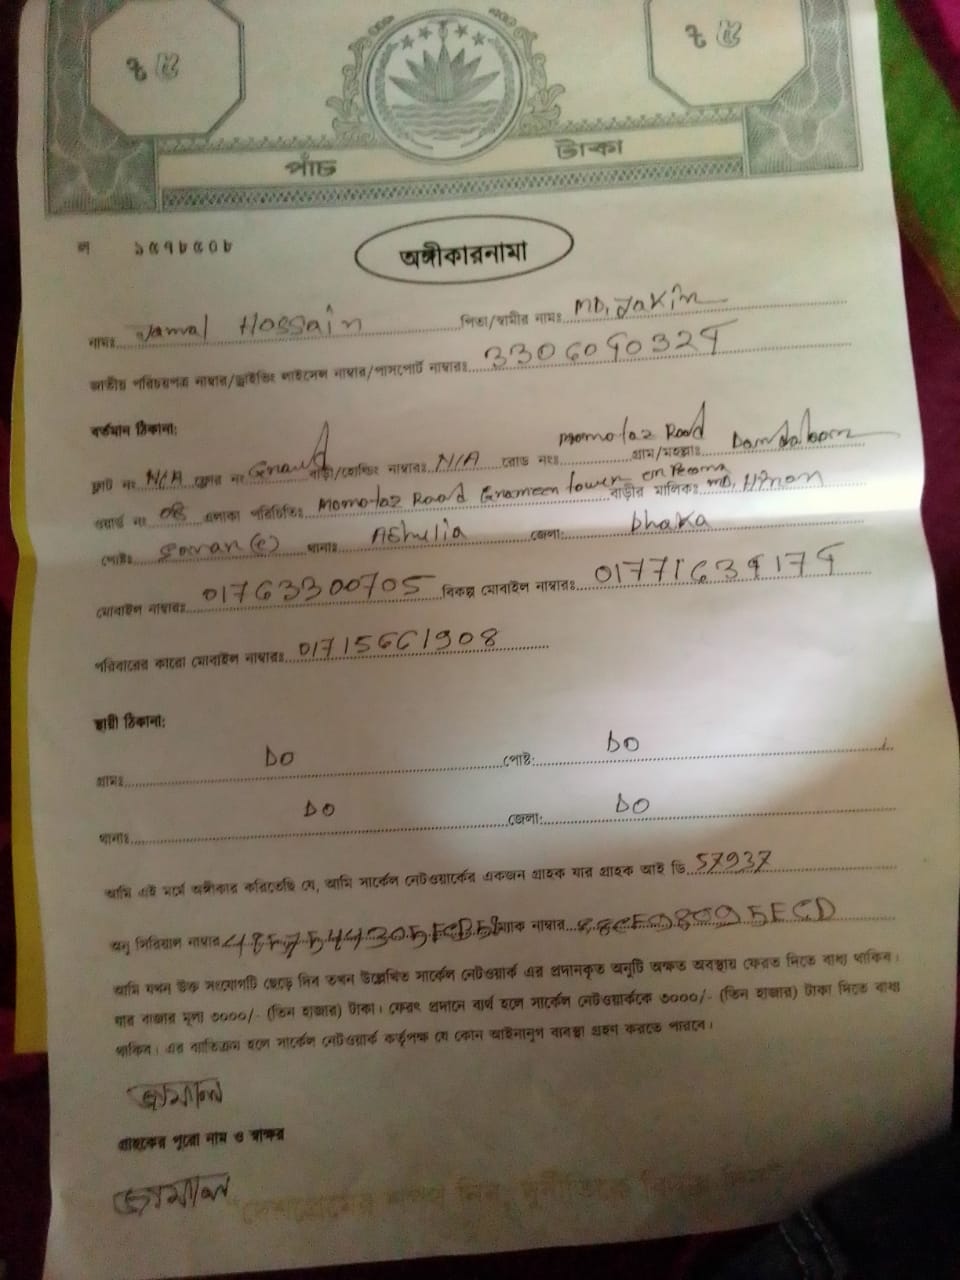 ৳ ৫ ৳ ৫
পাঁচ টাকা
ল ১৫৭৮৫০৮
অঙ্গীকারনামা
নামঃ Jamal Hossain পিতা/স্বামীর নামঃ MD, Jakir
জাতীয় পরিচয়পত্র নাম্বার/ড্রাইভিং লাইসেন্স নাম্বার/পাসপোর্ট নাম্বারঃ
বর্তমান ঠিকানা:
ফ্ল্যাট নং N/A ফ্লোর নং বাড়ী/হোল্ডিং নাম্বারঃ N/A রোড নংঃ Momotaz Road গ্রাম/মহল্লাঃ
ওয়ার্ড নং 08 এলাকা পরিচিতিঃ Momotaz Road Grameen tower বাড়ীর মালিকঃ MD,
পোষ্টঃ থানাঃ AShulia জেলা: Dhaka
মোবাইল নাম্বারঃ 01763300705 বিকল্প মোবাইল নাম্বারঃ
পরিবারের কারো মোবাইল নাম্বারঃ
স্থায়ী ঠিকানা:
গ্রামঃ DO পোষ্ট: DO
থানাঃ DO জেলা: DO
আমি এই মর্মে অঙ্গীকার করিতেছি যে, আমি সার্কেল নেটওয়ার্কের একজন গ্রাহক যার গ্রাহক আই ডি 57937
অনু সিরিয়াল নাম্বার ম্যাক নাম্বার
আমি যখন উক্ত সংযোগটি ছেড়ে দিব তখন উল্লেখিত সার্কেল নেটওয়ার্ক এর প্রদানকৃত অনুটি অক্ষত অবস্থায় ফেরত দিতে বাধ্য থাকিব।
যার বাজার মূল্য ৩০০০/- (তিন হাজার) টাকা। ফেরৎ প্রদানে ব্যর্থ হলে সার্কেল নেটওয়ার্ককে ৩০০০/- (তিন হাজার) টাকা দিতে বাধ্য
থাকিব। এর ব্যতিক্রম হলে সার্কেল নেটওয়ার্ক কর্তৃপক্ষ যে কোন আইনানুগ ব্যবস্থা গ্রহণ করতে পারবে।
জামাল
গ্রাহকের পুরো নাম ও স্বাক্ষর
জামাল
"দেশপ্রেমের শপথ নিন, দুর্নীতিকে বিদায় দিন"